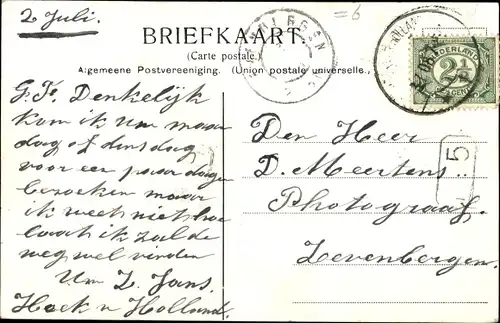 2 Juli.
=6
BRIEFKAART.
(Carte postale.)
Algemeene Postvereeniging. (Union postale universelle.)
NEDERLAND
2½
CENT
5
G. Fr. Denkelijk
kom ik Um maan
dag of dinsdag
voor een paar dagen
bezoeken maar
ik weet niet hoe
laat ik zal de
weg wel vinden
Um Z. Jans.
Hoek v Holland.
Den Heer
D. Meertens.
Photograaf
Zevenbergen.